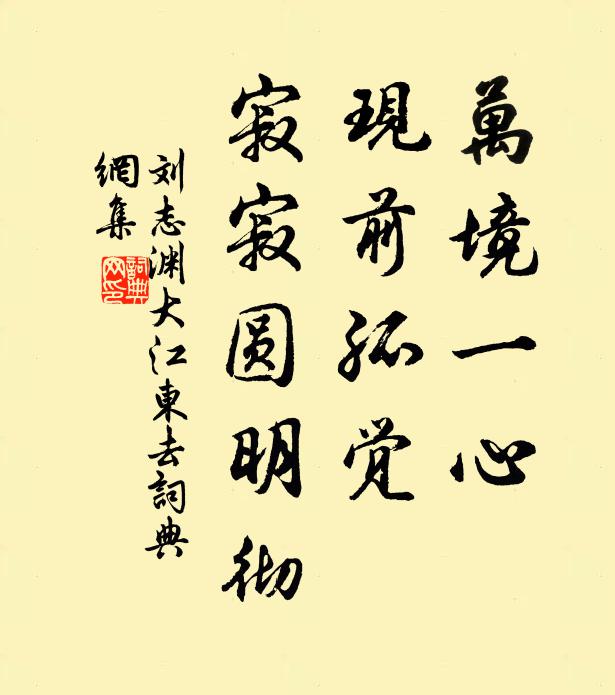 萬境一心
現前孤觉
寂寂圆明彻
刘志渊大江東去詞典
網集
詞典
网印